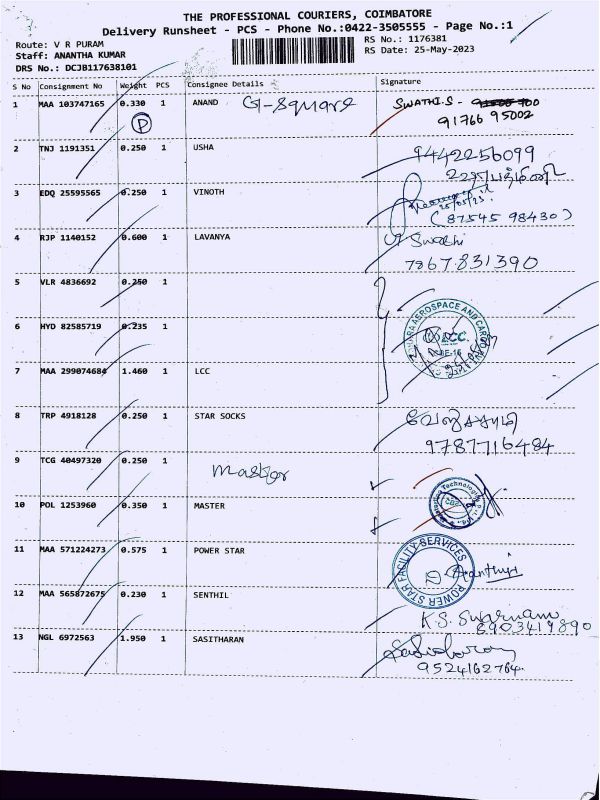 THE PROFESSIONAL COURIERS, COIMBATORE
Delivery Runsheet - PCS - Phone No.:0422-3505555 - Page No.:1
Route: V R PURAM
RS No.: 1176381
Staff: ANANTHA KUMAR
RS Date: 25-May-2023
DRS No.: DCJB117638101
S No Consignment No Weight PCS Consignee Details Signature
1 MAA 103747165 0.330 1 ANAND G-Square SWATHI.S -
P 91766 95002
2 TNJ 1191351 0.250 1 USHA 9442256099
3 EDQ 25595565 0.250 1 VINOTH
(87545 98430)
4 RJP 1140152 0.600 1 LAVANYA Swathi
7867831390
5 VLR 4836692 0.250 1
6 HYD 82585719 0.235 1
AEROSPACE AND
7 MAA 299074684 1.460 1 LCC
8 TRP 4918128 0.250 1 STAR SOCKS
9787716484
9 TCG 40497320 0.250 1 Master
10 POL 1253960 0.350 1 MASTER
11 MAA 571224273 0.575 1 POWER STAR
POWER STAR FACILITY SERVICES
12 MAA 565872675 0.230 1 SENTHIL K.S.
8903419890
13 NGL 6972563 1.950 1 SASITHARAN
9524162764.